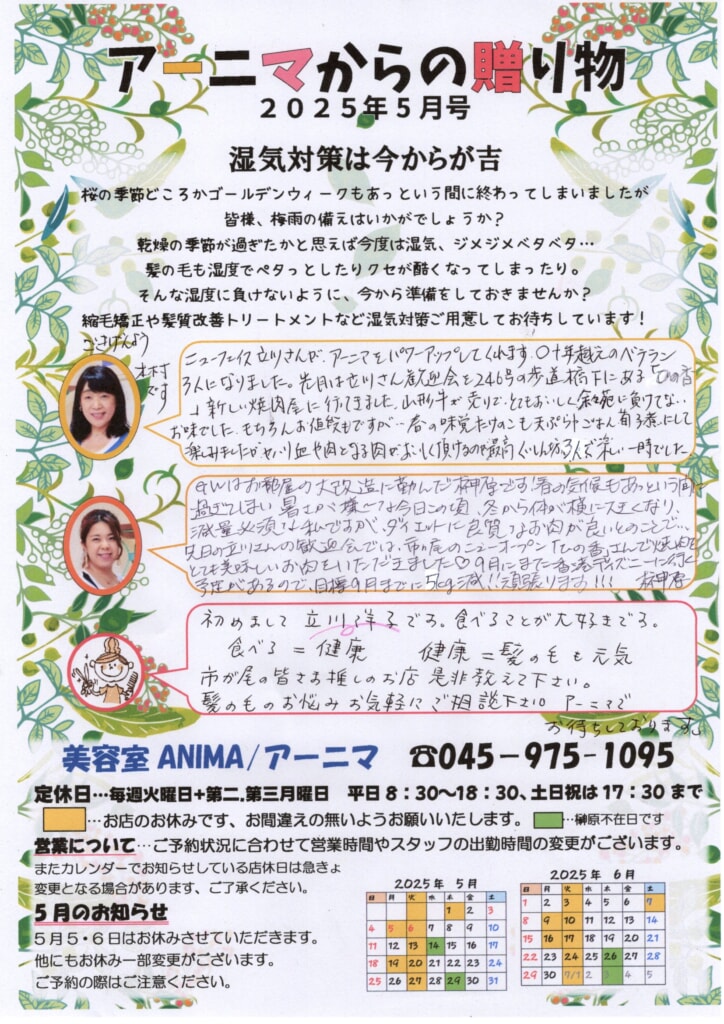 アーニマからの贈り物
2025年5月号
湿気対策は今からが吉
桜の季節どころかゴールデンウィークもあっという間に終わってしまいましたが
皆様、梅雨の備えはいかがでしょうか？
乾燥の季節が過ぎたかと思えば今度は湿気、ジメジメベタベタ…
髪の毛も湿度でペタっとしたりクセが酷くなってしまったり。
そんな湿度に負けないように、今から準備をしておきませんか？
縮毛矯正や髪質改善トリートメントなど湿気対策ご用意してお待ちしています！
ごきげんよう
木村
です
ニューフェイス立川さんが、アーニマをパワーアップしてくれます。〇十年越えのベテラン
3人になりました。先月は立川さん歓迎会を246号の歩道橋下にある「ひの香
」新しい焼肉屋に行ってきました。山形牛が売りで、とてもおいしく叙々苑に負けてない
お味でした。もちろんお値段もですが… 春の味覚たけのこも天ぷらたごはん 煮にして
楽しみましたが、やはり血や肉となる肉がおいしく頂けるのが最高、くいしん坊3人で楽しい一時でした
GWはお部屋の大改造に勤んだ榊原です！春の気候もあっという間に
過ぎてしまい 暑さが 今日この頃、冬から体が横に大きくなり、
減量必須な私ですが、ダイエットに良質なお肉が良いとのことで…
先日の立川さんの歓迎会では、市ヶ尾のニューオープン「ひの香」さんで焼肉を
とても美味しいお肉をいただきました♡ 9月にまた香港ディズニーに行く
予定があるので、目標9月までに5kg減!! 頑張ります!!! 榊原
初めまして 立川洋子です。食べることが大好きです。
食べる＝健康 健康＝髪の毛も元気
市が尾の皆さま推しのお店 是非教えて下さい。
髪のもののお悩み お気軽にご相談下さい。 アーニマで
お待ちしております。
美容室 ANIMA/アーニマ ☎045－975－1095
定休日…毎週火曜日+第二,第三月曜日 平日８：３０～１８：３０、土日祝は１７：３０まで
…お店のお休みです、お間違えの無いようお願いいたします。 …榊原不在日です
営業について…ご予約状況に合わせて営業時間やスタッフの出勤時間の変更がございます。
またカレンダーでお知らせしている店休日は急きょ
変更となる場合があります、ご了承ください。
５月のお知らせ
５月５・６日はお休みさせていただきます。
他にもお休み一部変更がございます。
ご予約の際はご注意ください。
2025年 5月
日 月 火 水 木 金 土
1 2 3
4 5 6 7 8 9 10
11 12 13 14 15 16 17
18 19 20 21 22 23 24
25 26 27 28 29 30 31
2025年 6月
日 月 火 水 木 金 土
1 2 3 4 5 6 7
8 9 10 11 12 13 14
15 16 17 18 19 20 21
22 23 24 25 26 27 28
29 30 7/1 2 3 4 5